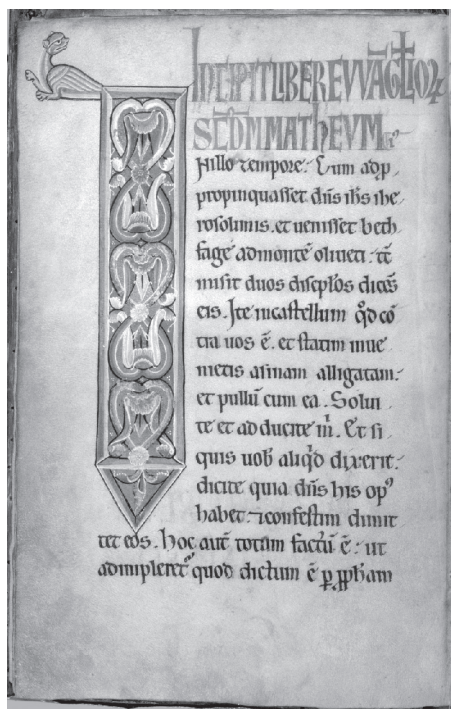 INCIPIT LIBER EVVĀGLIOꝜ
SCDM MATHEVM
N illo tempore. Cum adp
propinquasset dn̄s ih̄s ihe
rosolimis. et uenisset beth
fage ad montē oliueti. tē
misit duos discip̄los dicēs
eis. Ite in castellum qd̓ cō
tra uos ē. et statim inue
nietis asinam alligatam.
et pullū cum ea. Solui
te et ad ducite m̄. Et si
quis uob̄ aliqd̓ dixerit.
dicite quia dn̄s his opꝰ
habet. ⁊ confestim dimit
tet eos. Hoc autē totum factū ē. ut
adimpleret᷑ quod dictum ē ꝑ ꝓpham